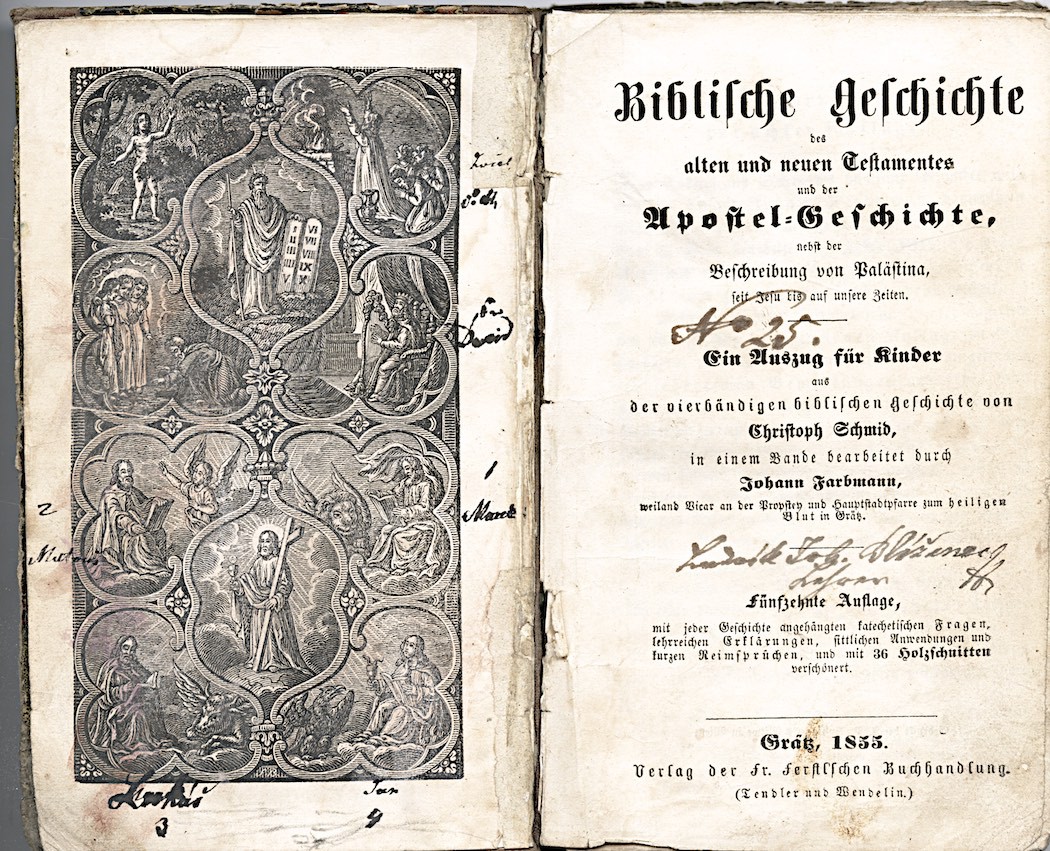 VI
VII
VIII
IX
X
David
1
Marek
2
Lukáš
3
Jan
4
Biblische Geschichte
des
alten und neuen Testamentes
und der
Apostel-Geschichte,
nebst der
Beschreibung von Palästina,
seit Jesu bis auf unsere Zeiten.
No 25.
Ein Auszug für Kinder
aus
der vierbändigen biblischen Geschichte von
Christoph Schmid,
in einem Bande bearbeitet durch
Johann Farbmann,
weiland Vicar an der Propstey und Hauptstadtpfarre zum heiligen
Blut in Grätz.
Joh.
Lehrer
Fünfzehnte Auflage,
mit jeder Geschichte angehängten katechetischen Fragen,
lehrreichen Erklärungen, sittlichen Anwendungen und
kurzen Reimsprüchen, und mit 36 Holzschnitten
verschönert.
Grätz, 1855.
Verlag der Fr. Ferstl'schen Buchhandlung.
(Tendler und Wendelin.)